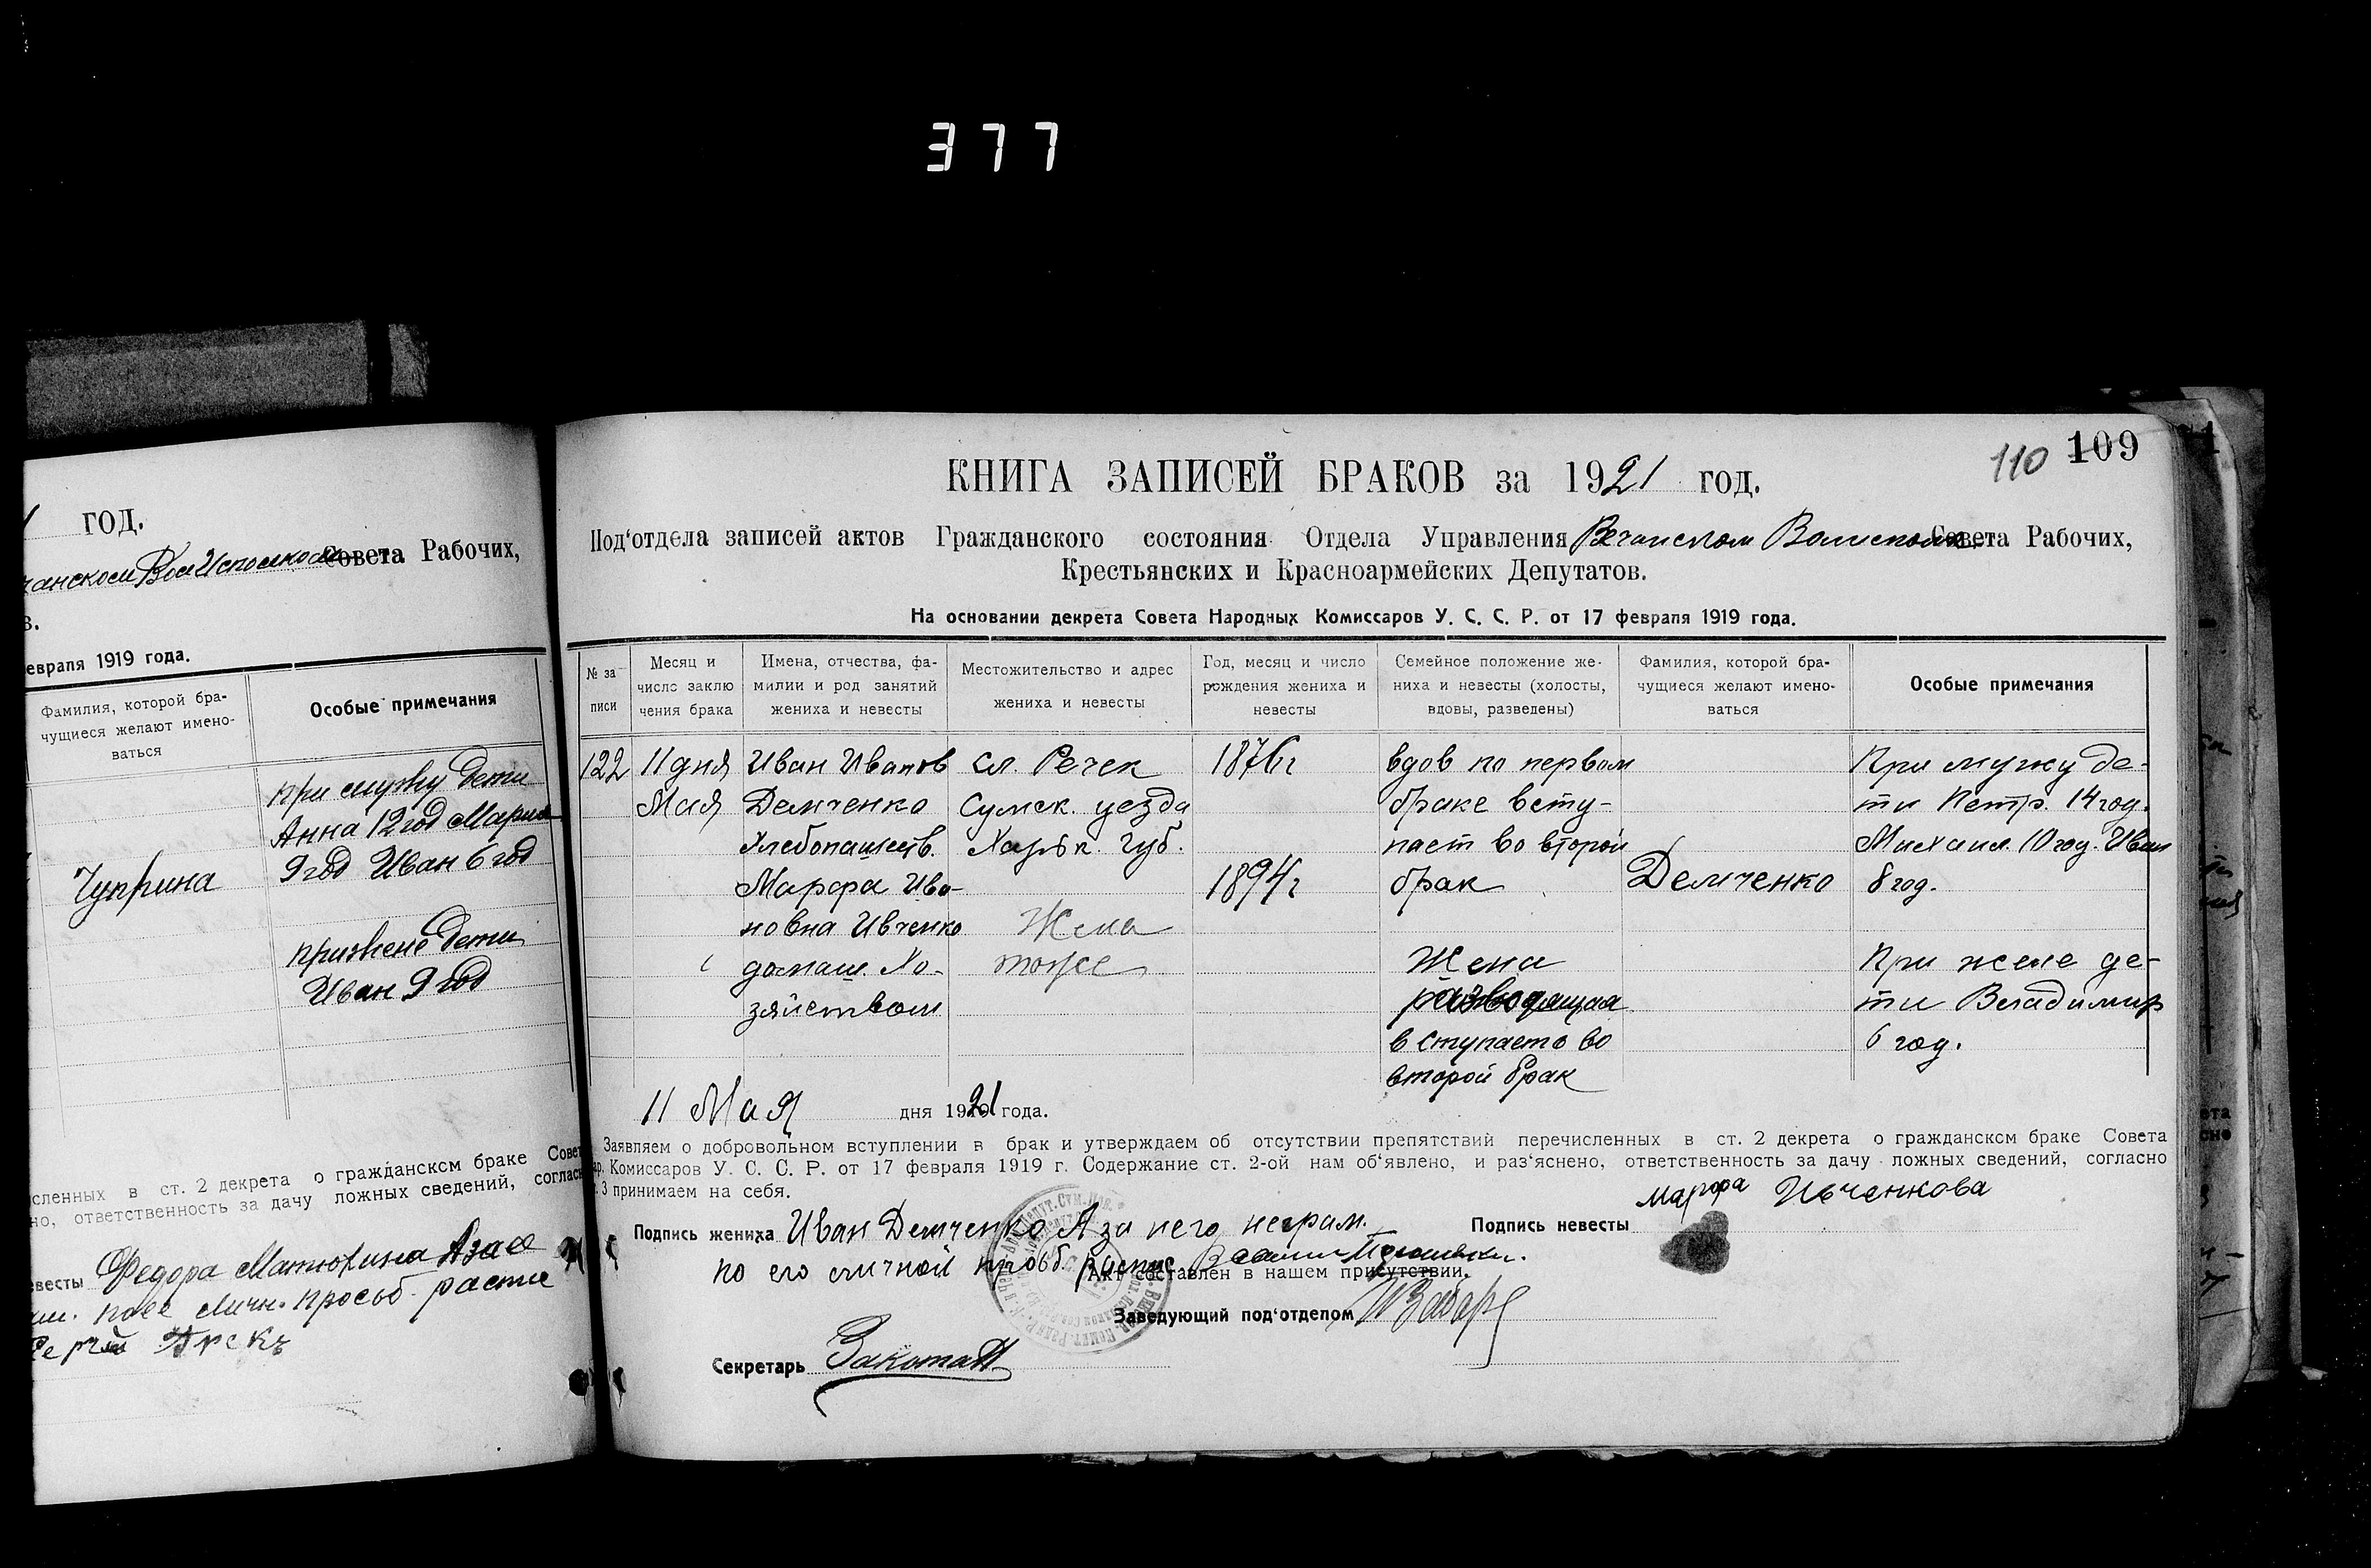 377
год.
Совета Рабочих,
евраля 1919 года.
Фамилия, которой бра-
чущиеся желают имено-
ваться
Особые примечания
при мужу дети
Анна 12 год Мария
9 год Иван 6 год
Чуприна
при жене дети
Иван 9 год
сленных в ст. 2 декрета о гражданском браке Совет
но, ответственность за дачу ложных сведений, согласн
евесты Федора Матюхина А за ее
расписе
110 109
КНИГА ЗАПИСЕЙ БРАКОВ за 1921 год.
Под'отдела записей актов Гражданского состояния Отдела Управления Совета Рабочих,
Крестьянских и Красноармейских Депутатов.
На основании декрета Совета Народных Комиссаров У. С. С. Р. от 17 февраля 1919 года.
№ за
писи
Месяц и
число заклю
чения брака
Имена, отчества, фа-
милии и род занятий
жениха и невесты
Местожительство и адрес
жениха и невесты
Год, месяц и число
рождения жениха и
невесты
Семейное положение же-
ниха и невесты (холосты,
вдовы, разведены)
Фамилия, которой бра-
чущиеся желают имено-
ваться
Особые примечания
122
11 дня
Мая
Иван Иванов
Демченко
Хлебопашеств.
Марфа Ива-
новна Ивченко
домаш. Хо-
зяйством
сл. Речек
Сумск. уезда
Харьк. губ.
Жена
тоже
1876 г
1894 г
вдов по первом
браке всту-
пает во второй
брак
Жена
разводящая
вступаетъ во
второй брак
Демченко
При мужу де-
ти Петр. 14 год.
Михаил 10 год. Иван
8 год.
При жене де-
ти Владимир
6 год.
11 Мая дня 1921 года.
Заявляем о добровольном вступлении в брак и утверждаем об отсутствии препятствий перечисленных в ст. 2 декрета о гражданском браке Совета
ар. Комиссаров У. С. С. Р. от 17 февраля 1919 г. Содержание ст. 2-ой нам об'явлено, и раз'яснено, ответственность за дачу ложных сведений, согласно
. 3 принимаем на себя.
Подпись жениха Иван Демченко А за него неграм.
по его личной просьб. распис.
Подпись невесты Марфа Ивченкова
Акт составлен в нашем присутствии.
Заведующий под'отделом
Секретарь